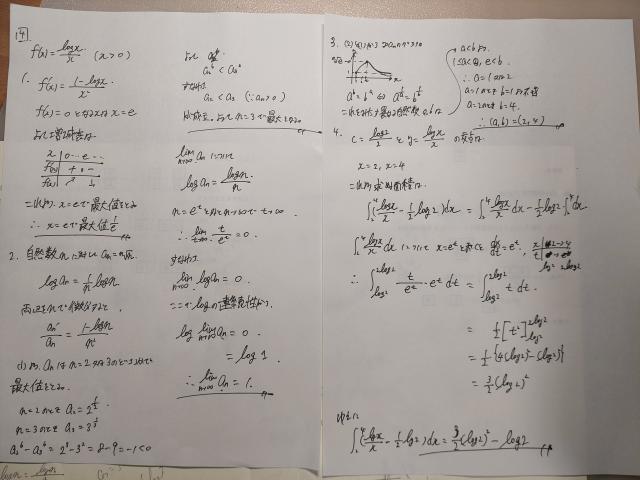 4
f(x) = logx/x (x>0)
1. f'(x) = (1-logx)/x²
f'(x) = 0 となるxは x = e
よって増減表は
x | 0 … e …
f'(x) + 0 -
f(x) ↗ ↘
これより、x=eで最大値をとる
∴ x=eで最大値 1/e
2. 自然数nに対し an = ⁿ√n
log an = 1/n log n
両辺をnで微分すると、
an'/an = (1-logn)/n²
(1)より、anはn=2又は3のどちらかで
最大値をとる
n=2のとき a2 = 2^(1/2)
n=3のとき a3 = 3^(1/3)
a2⁶ - a3⁶ = 2³ - 3² = 8 - 9 = -1 < 0
よって
a2⁶ < a3⁶
すなわち
a2 < a3 (∵ an > 0)
が成立。よって n=3で最大となる
lim n→∞ an について
log an = logn/n
n = e^t とおくと n→∞で t→∞
∴ lim t→∞ t/e^t = 0.
すなわち
lim n→∞ log an = 0.
ここで logの連続性から、
log lim n→∞ an = 0
= log 1
∴ lim n→∞ an = 1.
3.
a^b = b^a ⇔ a^(1/a) = b^(1/b)
a<b より
1≤a<e, e<b
∴ a = 1 or 2
a=1のとき b=1より不適
a=2のとき b=4.
∴ (a, b) = (2, 4)
4. c = log2/2 と y = logx/x の交点は
x = 2, x = 4
これより求める面積は
∫₂⁴ (logx/x - 1/2 log2) dx = ∫₂⁴ logx/x dx - 1/2 log2 ∫₂⁴ dx
∫₂⁴ logx/x dx について x = e^t とおくと dx/dt = e^t, x | 2 → 4
t | log2 → 2log2
∴ ∫_{log2}^{2log2} t/e^t · e^t dt = ∫_{log2}^{2log2} t dt.
= 1/2 [t²]_{log2}^{2log2}
= 1/2 {4(log2)² - (log2)²}
= 3/2 (log2)²
ゆえに
∫₂⁴ (logx/x - 1/2 log2) dx = 3/2 (log2)² - log2